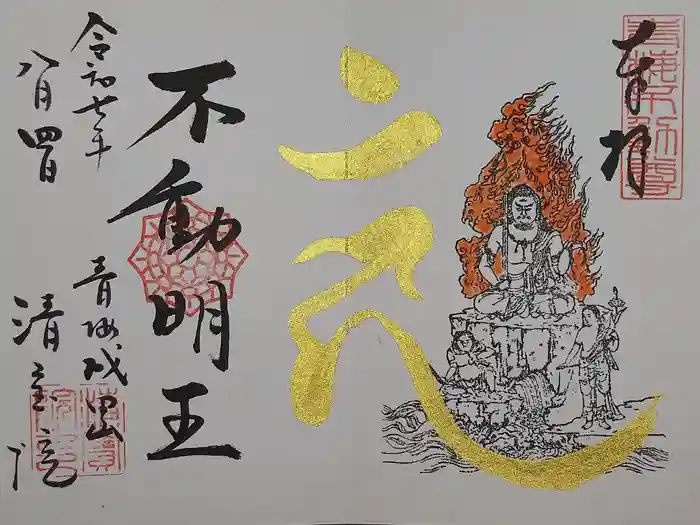 奉拝
不動明王
令和七年
八月四日
青梅成田山
清宝院